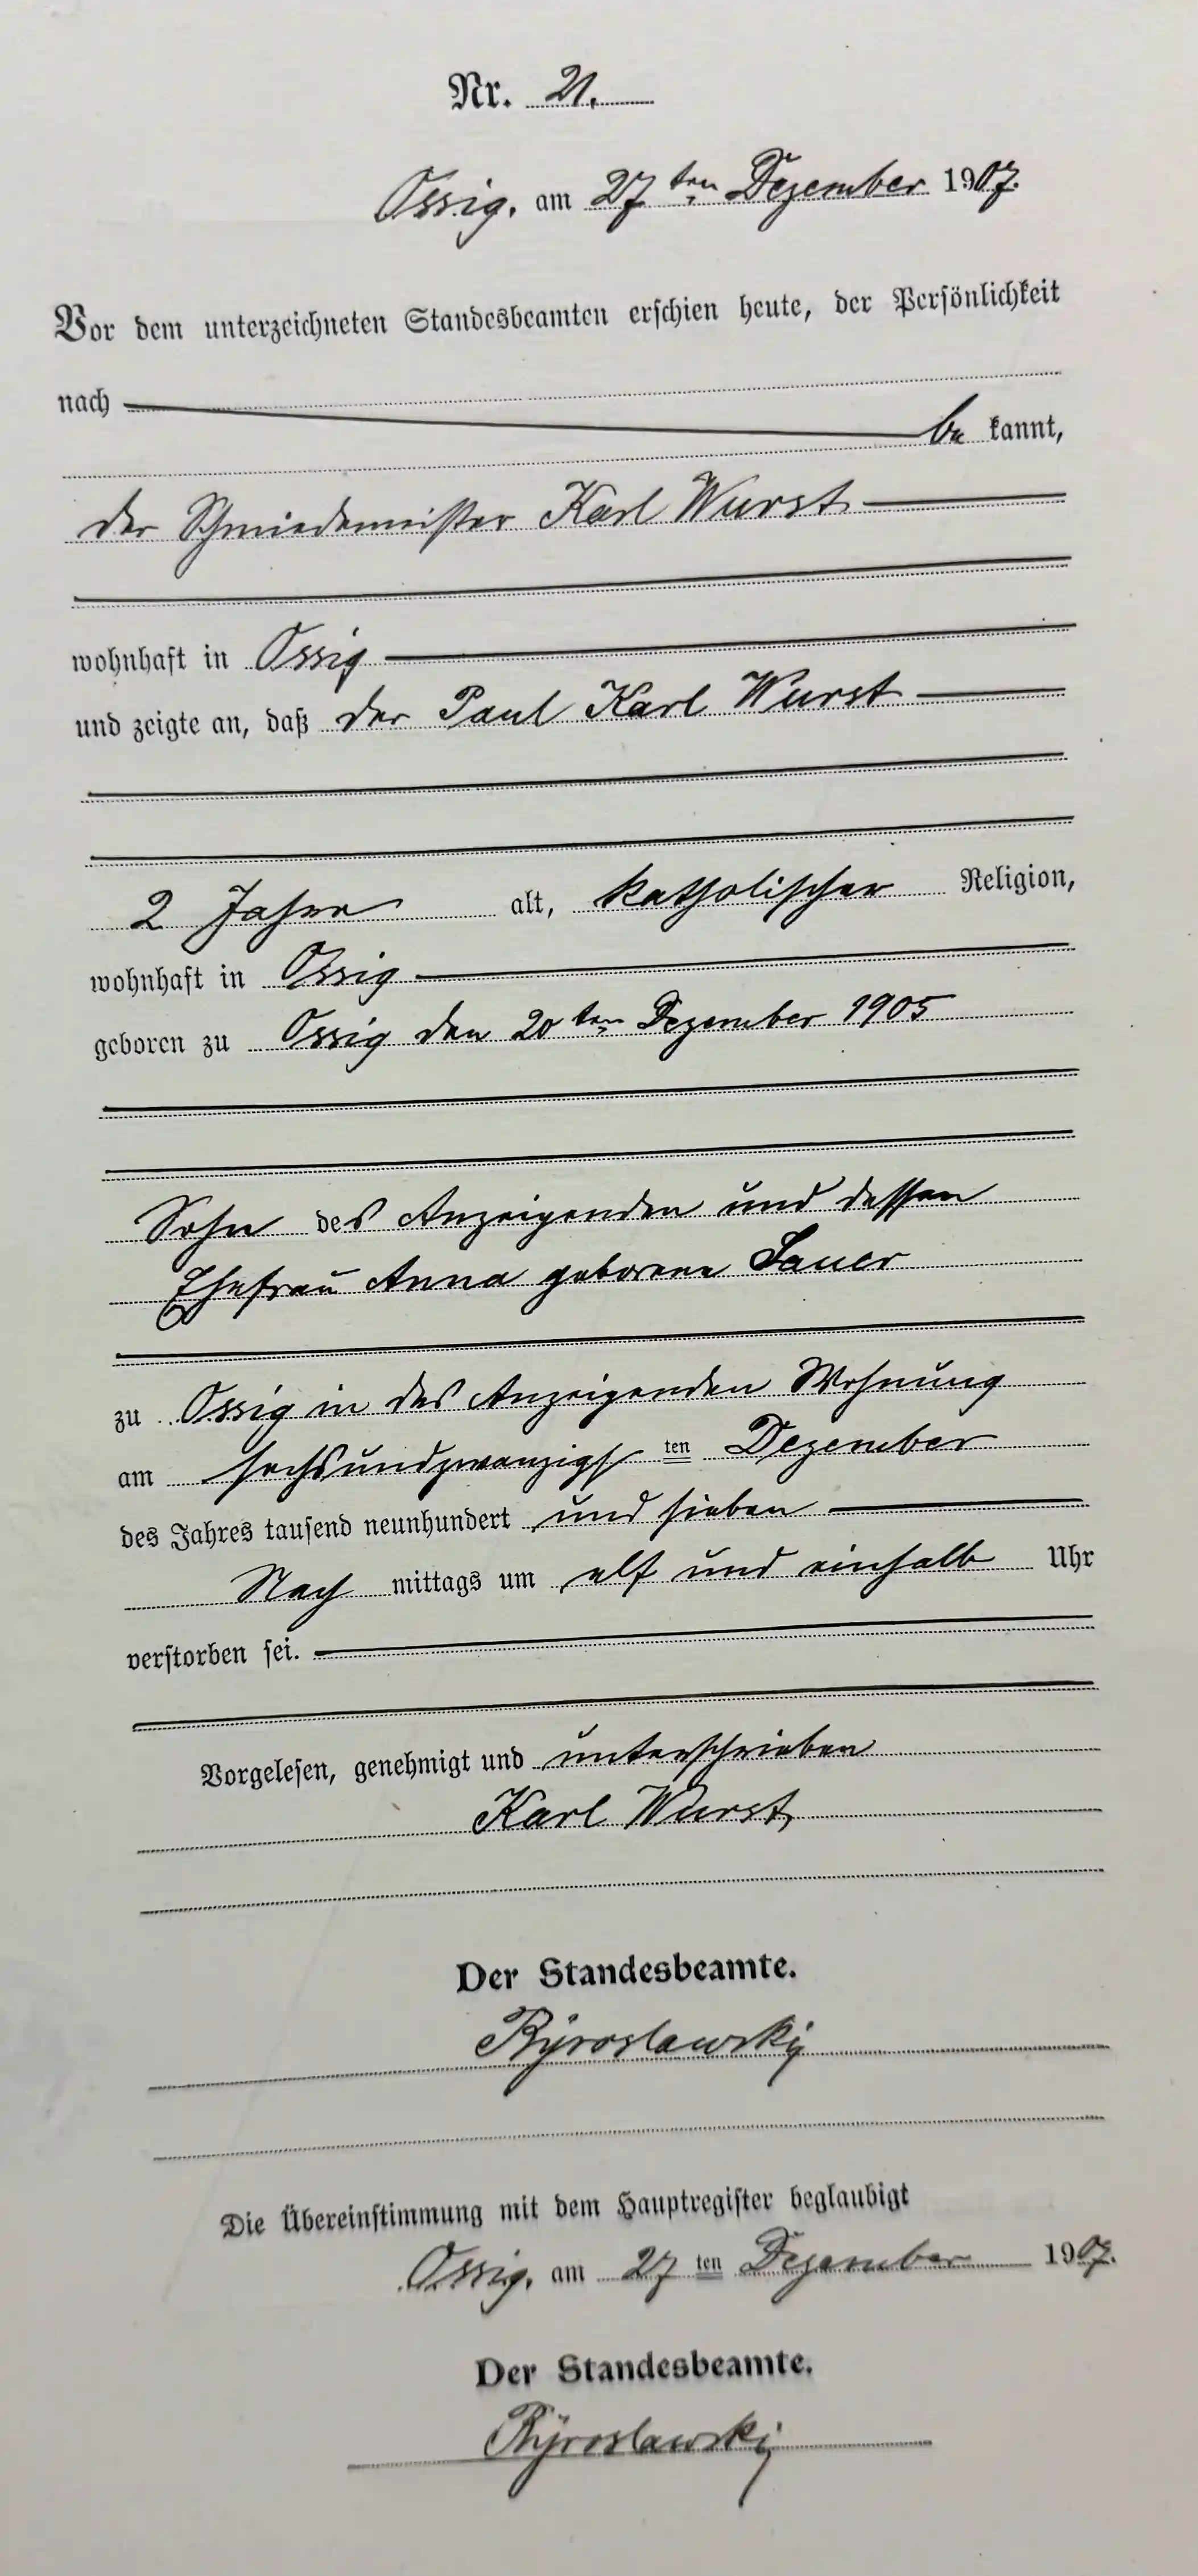 Nr. 21.
Ossig, am 27ten Dezember 1907.
Vor dem unterzeichneten Standesbeamten erschien heute, der Persönlichkeit
nach
be kannt,
der Schmiedemeister Karl Wurst
wohnhaft in Ossig
und zeigte an, daß der Paul Karl Wurst
2 Jahre alt, katholischer Religion,
wohnhaft in Ossig
geboren zu Ossig den 20ten Dezember 1905
Sohn des Anzeigenden und dessen
Ehefrau Anna geborene Sauer
zu Ossig in des Anzeigenden Wohnung
am sechsundzwanzigsten Dezember
des Jahres tausend neunhundert und sieben
Nach mittags um elf und einhalb Uhr
verstorben sei.
Vorgelesen, genehmigt und unterschrieben
Karl Wurst
Der Standesbeamte.
Die Übereinstimmung mit dem Hauptregister beglaubigt
Ossig, am 27ten Dezember 1907.
Der Standesbeamte.